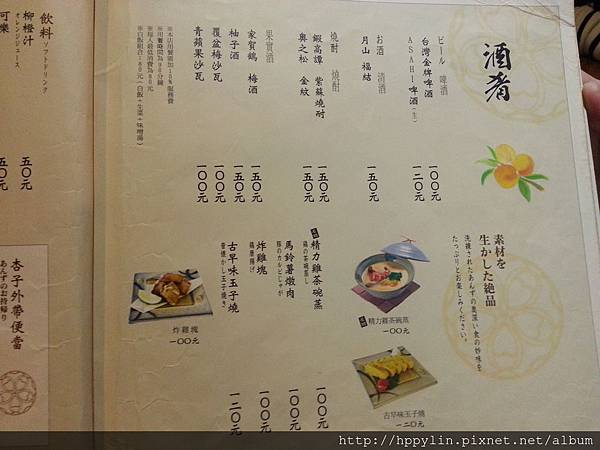 酒肴
ビール 啤酒
台灣金牌啤酒 一〇〇元
ASAHI啤酒(生) 一二〇元
お酒 清酒
月山 福結 一五〇元
燒酎 燒酎
蝦高譚 紫蘇燒酎 一五〇元
奧之松 金紋 一五〇元
果實酒
家賀鶴 梅酒 一五〇元
柚子酒 一五〇元
覆盆梅沙瓦 一〇〇元
青蘋果沙瓦 一〇〇元
※本店用餐需加10%服務費
※用餐時間為90分鐘
※每人最低消費為80元
※白飯組合180元(白飯+生菜+味噌湯)
素材を
生かした絶品
洗練されたあんずの奥深い食の妙味を
たっぷりとお楽しみください。
精力雞茶碗蒸 一〇〇元
鶏の茶碗蒸し
馬鈴薯燉肉 一〇〇元
豚のカルビじゃが
炸雞塊 一〇〇元
鶏唐揚げ
古早味玉子燒 一二〇元
昔懐かし玉子焼き
精力雞茶碗蒸
一〇〇元
炸雞塊
一〇〇元
古早味玉子燒
一二〇元
飲料 ソフトドリンク
柳橙汁 五〇元
オレンジジュース
可樂 五〇元
杏子外帶便當
あんずのお持帰り
http://hppylin.pixnet.net/album